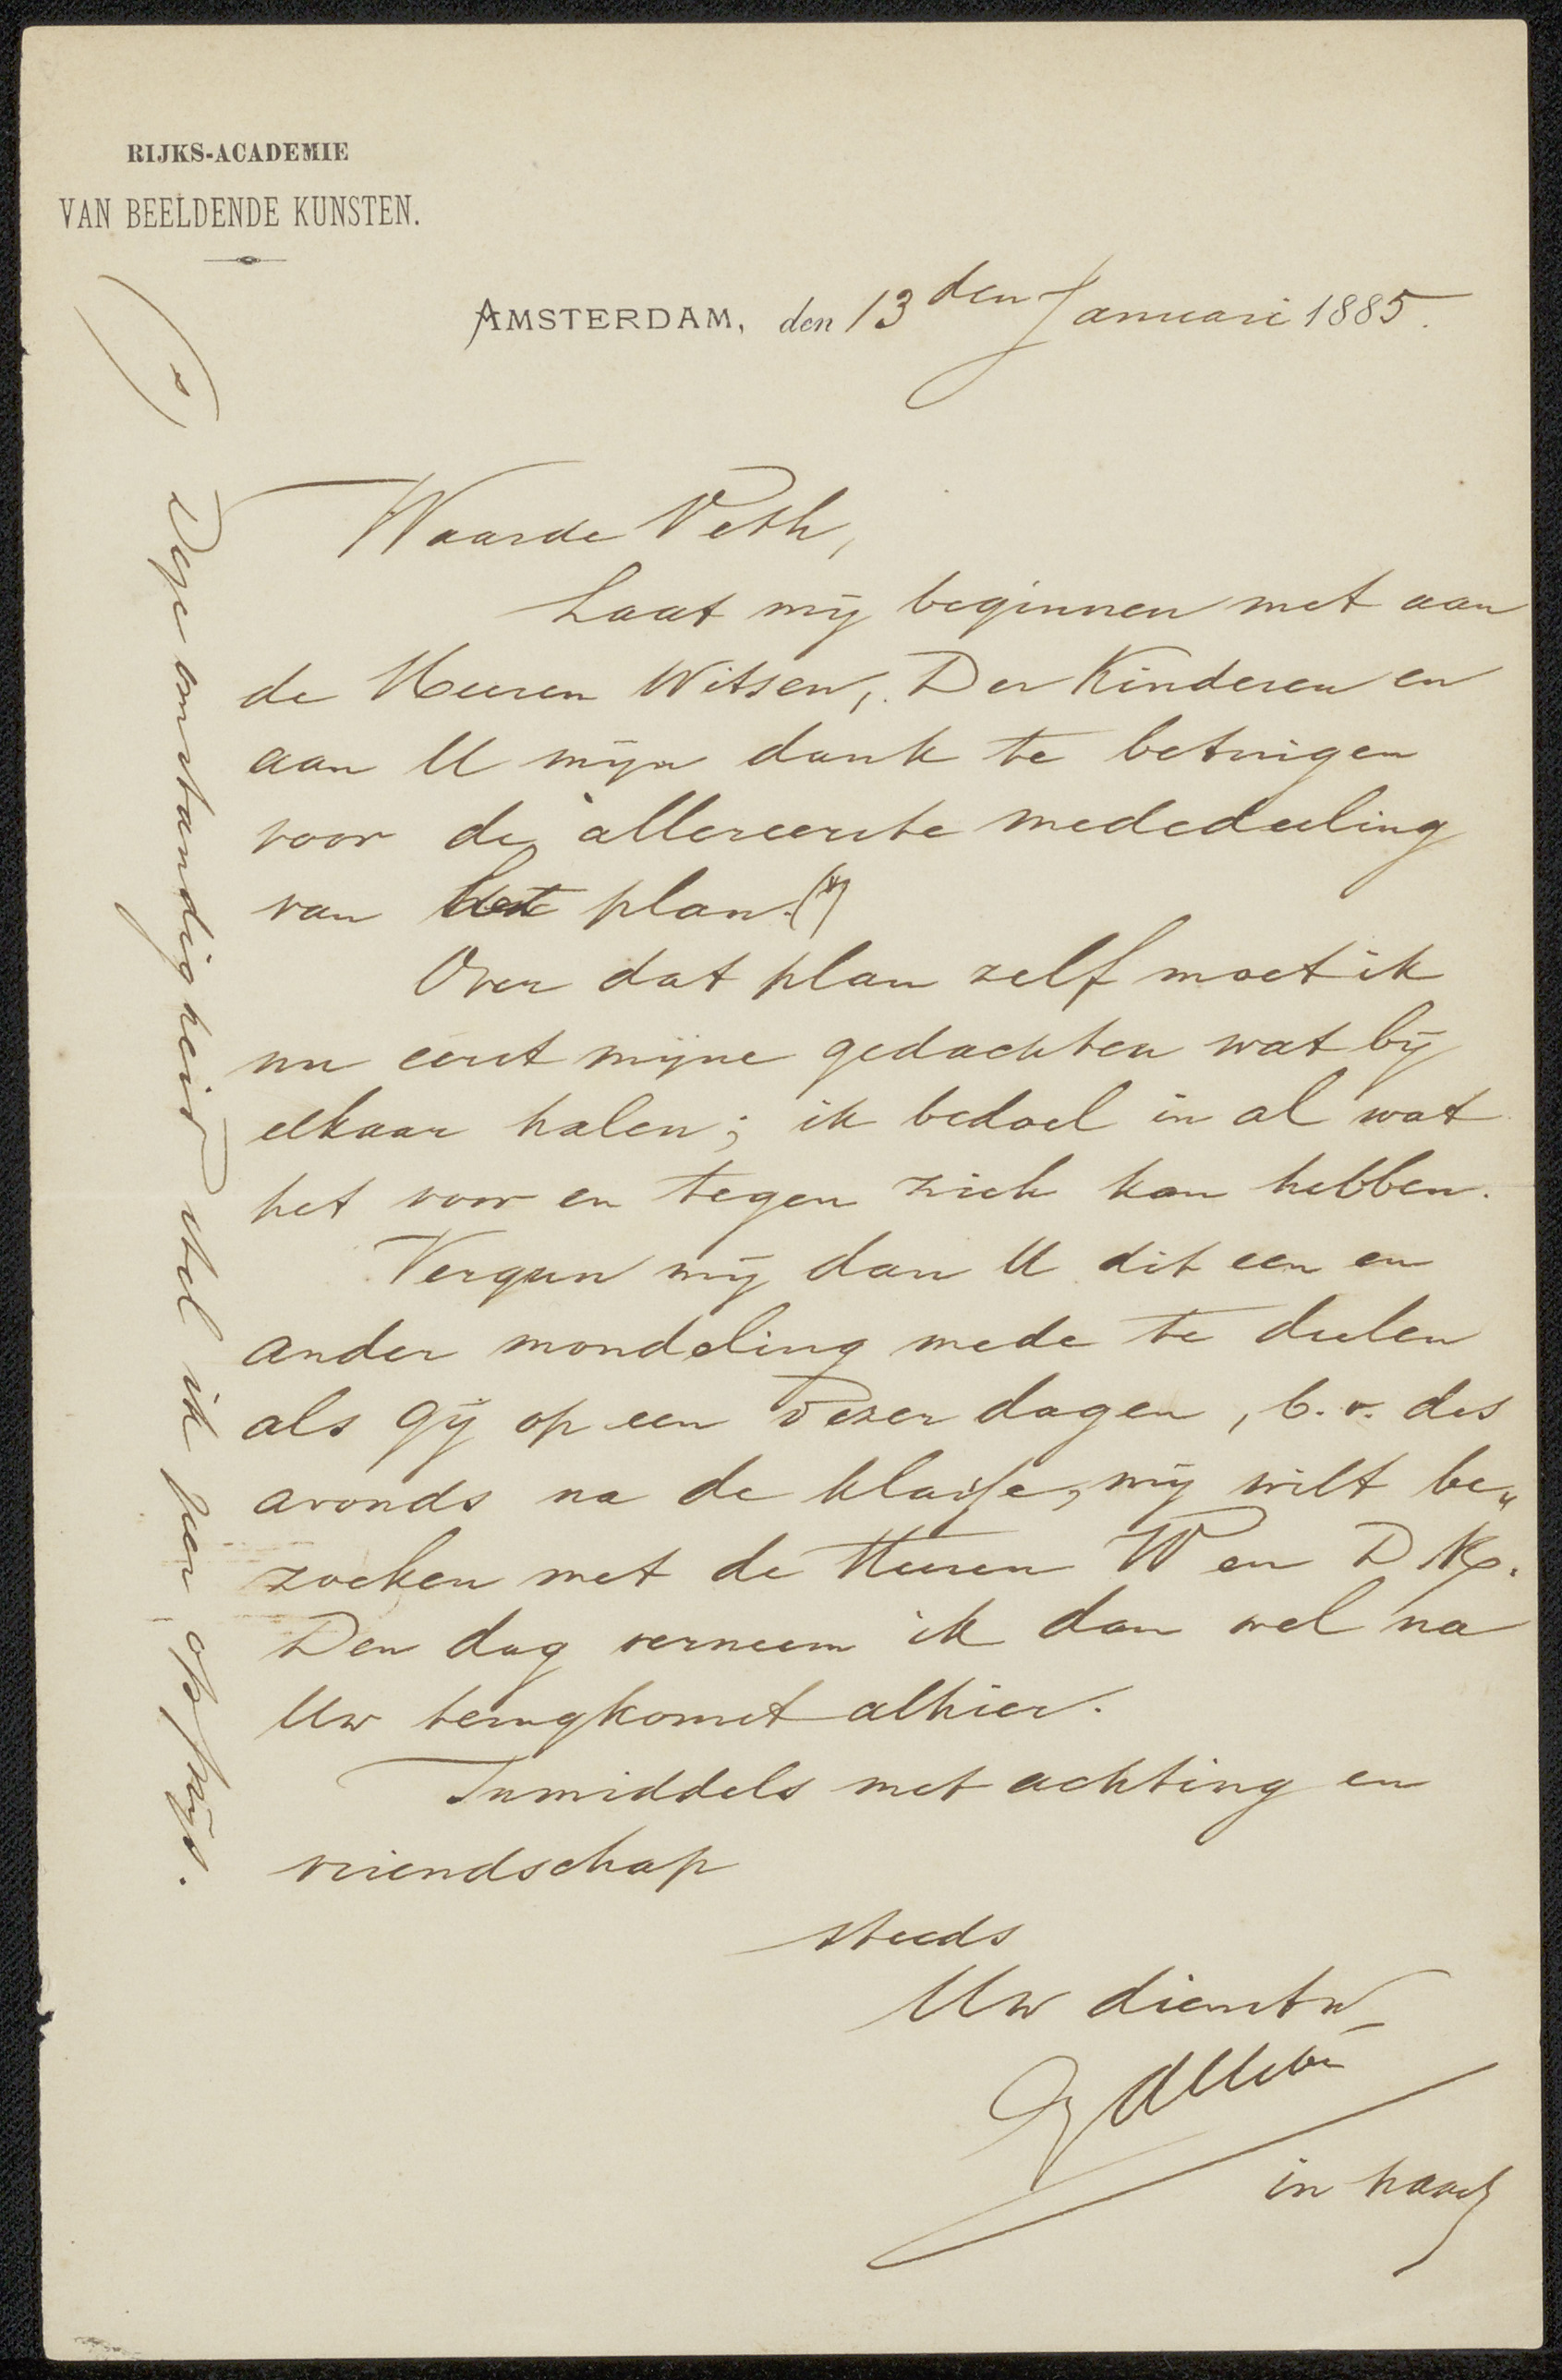 RIJKS-ACADEMIE
VAN BEELDENDE KUNSTEN.
AMSTERDAM, den 13den Januari 1885.
Waarde Veth,
Laat mij beginnen met aan
de Heeren Witsen, Der Kinderen en
aan U mijn dank te betuigen
voor de allereerste mededeeling
van het plan.(*)
Over dat plan zelf moet ik
nu eerst mijne gedachten wat bij
elkaar halen; ik bedoel in al wat
het voor en tegen zich kan hebben.
Vergun mij dan U dit een en
ander mondeling mede te deelen
als gij op een dezer dagen, b.v. des
avonds na de klasse, mij wilt be„
zoeken met de Heeren W en D K.
Den dag verneem ik dan wel na
Uw terugkomst alhier.
Inmiddels met achting en
vriendschap
steeds
Uw dienstw
Allebé
in haast
(*) Deze omstandigheid stel ik zeer op prijs.